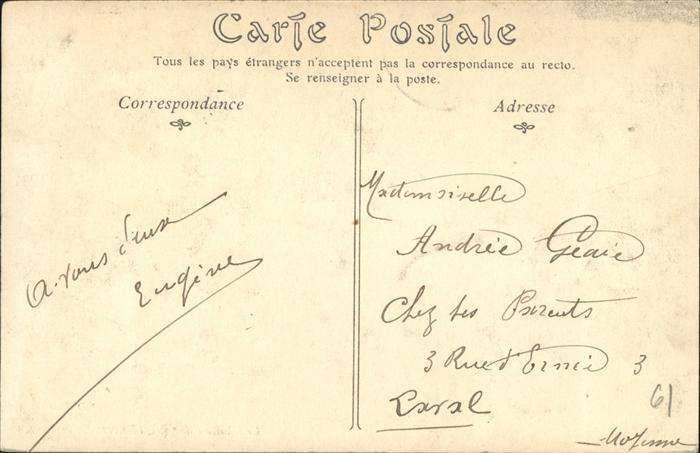 Carte Postale
Tous les pays étrangers n'acceptent pas la correspondance au recto.
Se renseigner à la poste.
Correspondance
A vous deux
Eugène
Adresse
Mademoiselle
Andrée Geaie
Chez ses Parents
3 Rue d'Ernée 3
Laval
61
Mayenne